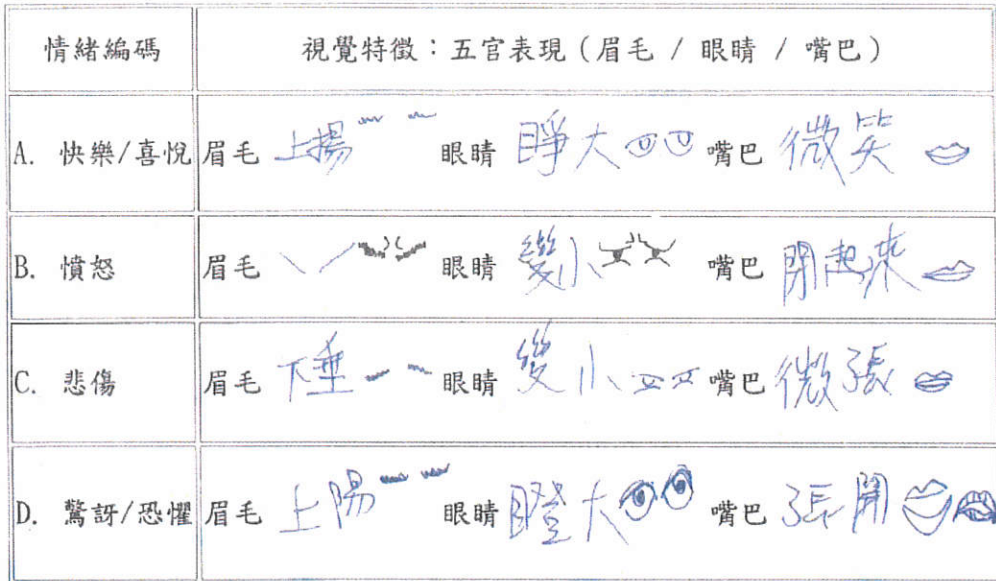 情緒編碼 視覺特徵：五官表現（眉毛 / 眼睛 / 嘴巴）
A. 快樂/喜悅 眉毛 上揚 眼睛 睜大 嘴巴 微笑
B. 憤怒 眉毛 ＼／ 眼睛 變小 嘴巴 閉起來
C. 悲傷 眉毛 下垂 眼睛 變小 嘴巴 微張
D. 驚訝/恐懼 眉毛 上陽 眼睛 瞪大 嘴巴 張開